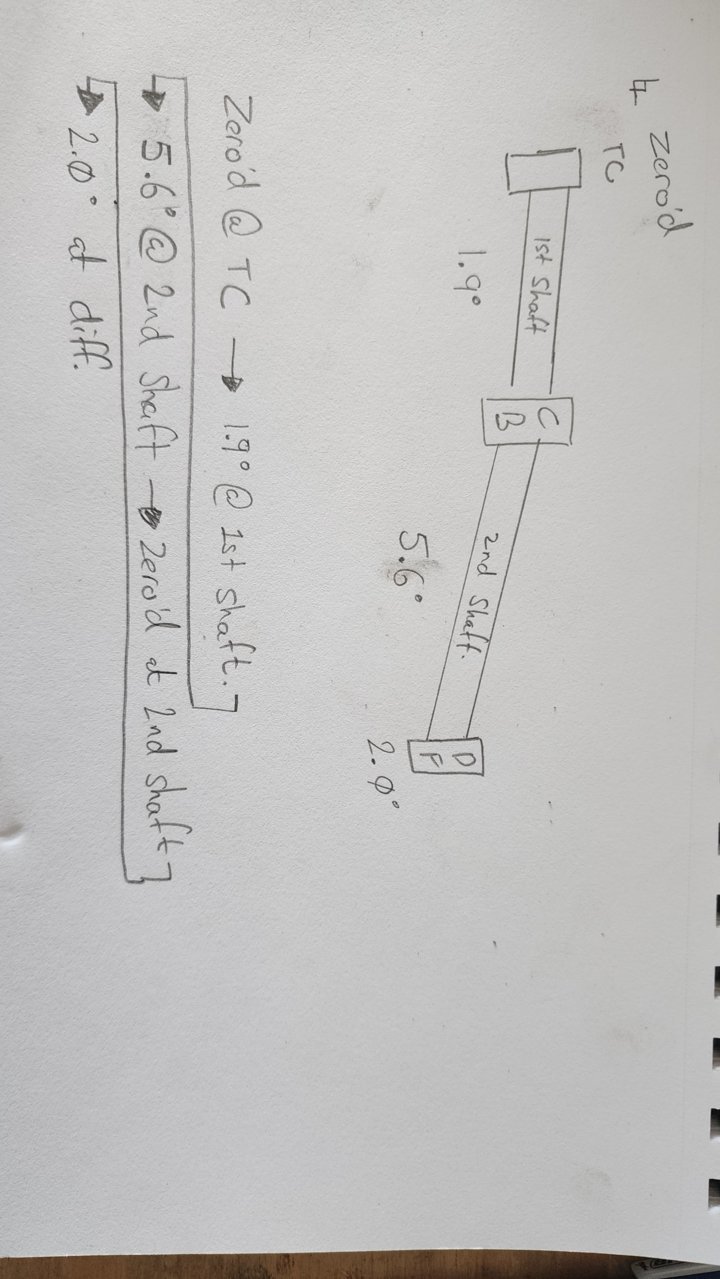 ↳ Zero'd
TC
1st Shaft
C
B
2nd Shaft.
D
F
1.9°
5.6°
2.0°
Zero'd @ TC → 1.9° @ 1st shaft.
→ 5.6° @ 2nd Shaft → Zero'd at 2nd shaft
→ 2.0° at diff.